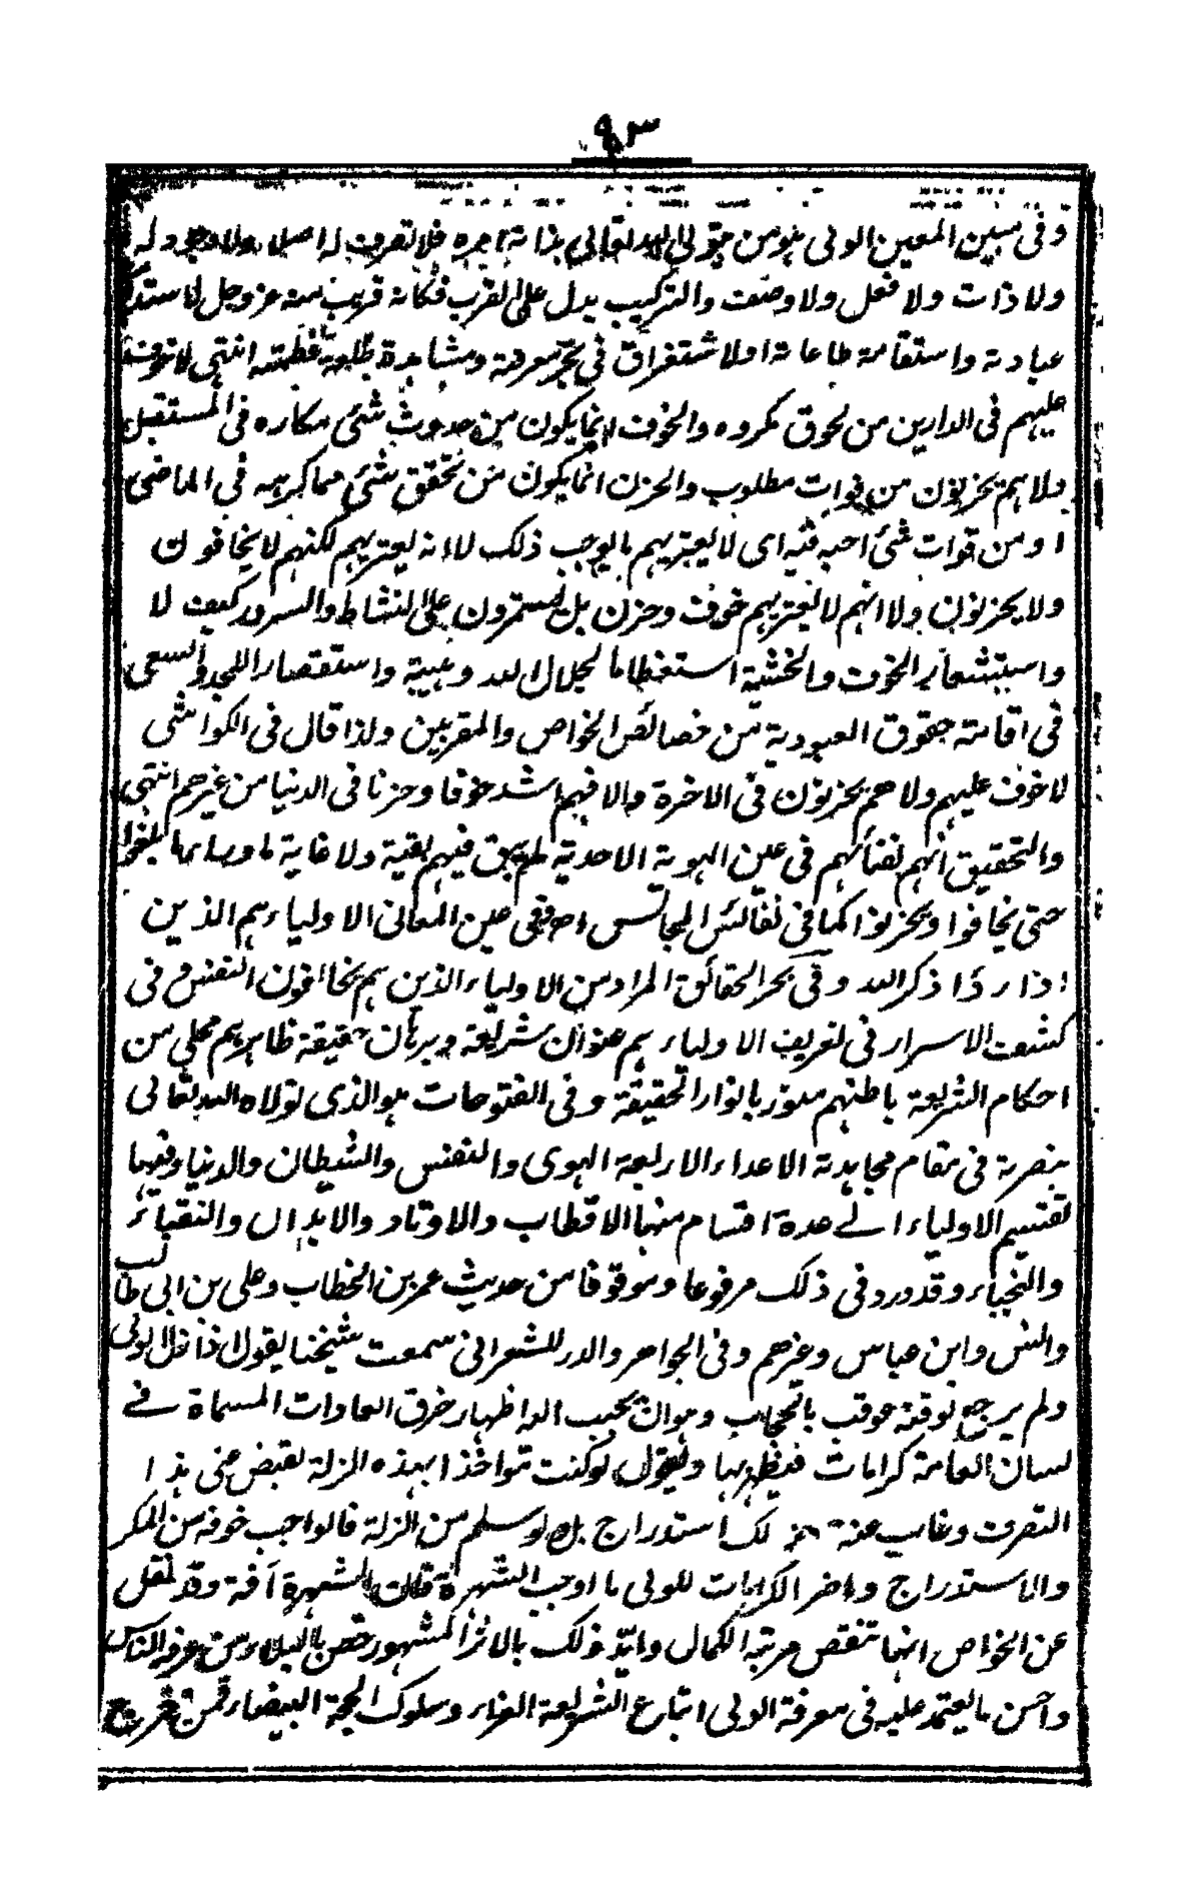 ٩٣
وفى مبين المعين الولى هو من يتولى الله تعالى بذاته امره فلا تصرف له اصلا ولا وجود له
ولا ذات ولا فعل ولا وصف والتركيب يدل على القرب فكانه قريب منه عز وجل لاستد
عبادته واستقامة طاعاته او لاستغراق فى بحر معرفته ومشاهدة طلعة عظمته انتهى لا خوف
عليهم فى الدارين من لحوق مكروه والخوف انما يكون من حدوث شئ مكاره فى المستقبل
ولا هم يحزنون من فوات مطلوب والحزن انما يكون من تحقق شئ مما كرهه فى الماضى
او من فوات شئ احبه فيه اى لا يعتريهم ما يوجب ذلك لا انه يعتريهم لكنهم لا يخافون
ولا يحزنون ولا انهم لا يعتريهم خوف وحزن بل يستمرون على النشاط والسرور كيف لا
واستشعار الخوف والخشية استعظاما لجلال الله وهيبة واستقصارا للجد والسعى
فى اقامة حقوق العبودية من خصائص الخواص والمقربين ولذا قال فى الكواشى
لا خوف عليهم ولا هم يحزنون فى الاخرة والا فهم اشد خوفا وحزنا فى الدنيا من غيرهم انتهى
والتحقيق انهم لفنائهم فى عين الهوية الاحدية لم يبق فيهم بقية ولا غاية ما وراءها ليبلغوا
حتى يخافوا ويحزنوا كما فى نفائس المجالس وفى عين المعانى الاولياء هم الذين
اذا رؤا ذكر الله وفى بحر الحقائق المراد من الاولياء الذين هم يخالفون النفس وفى
كشف الاسرار فى تعريف الاولياء هم عنوان شريعة وبرهان حقيقة ظاهرهم محلى من
احكام الشريعة باطنهم منور بانوار الحقيقة وفى الفتوحات هو الذى تولاه الله تعالى
بنصرته فى مقام مجاهدته الاعداء الاربعة الهوى والنفس والشيطان والدنيا وفيها
تقسيم الاولياء الى عدة اقسام منها الاقطاب والاوتاد والابدال والنقباء
والنجباء وقد ورد فى ذلك مرفوعا وموقوفا من حديث عمر بن الخطاب وعلى بن ابى طالب
وانس وابن عباس وغيرهم وفى الجواهر والدرر للشعرانى سمعت شيخنا يقول اذا زل الولى
ولم يرجع لوقته عوقب بالحجاب وهو ان يحبب اليه اظهار خرق العادات المسماة فى
لسان العامة كرامات فيظهر بها ويقول لو كنت مؤاخذا بهذه الزلة لقبض عنى هذا
التصرف وغاب عنه ان ذلك استدراج بل لو سلم من الزلة فالواجب خوفه من المكر
والاستدراج واضر الكرامات للولى ما اوجب الشهرة فان الشهرة آفة وقد نقل
عن الخواص انها تنقص مرتبة الكمال وايد ذلك بالاثر المشهور خص بالبلاء من عرفه الناس
واحسن ما يعتمد عليه فى معرفة الولى اتباع الشريعة الغراء وسلوك المحجة البيضاء فمن خرج